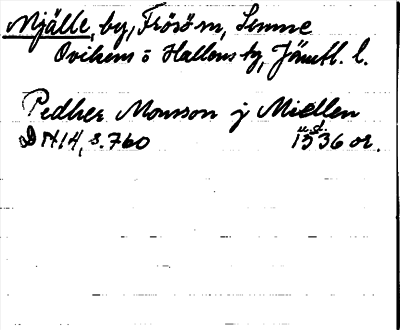 Mjälle, by, Frösö sn, Sunne
Ovikens o Hallens tg, Jämtl. l.
Pedher Monsson j Miellen
D N 14, s. 760
u.d.
1536 or.